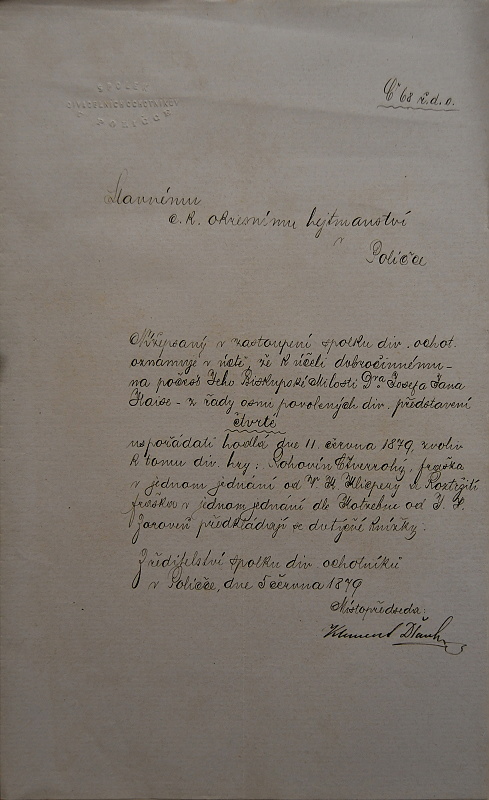 SPOLEK
DIVADELNÍCH OCHOTNÍKŮ
POLIČCE
Čs 68 r. d. o.
Slavnému
c. k. okresnímu hejtmanství
v
Poličce
Nížepsaný v zastoupení spolku div. ochot.
oznamuje v úctě, že k účeli dobročinnému –
na počest Jeho Biskupské Milosti Dra Josefa Jana
Haise – z řady osmi povolených div. představení
čtvrté
uspořádati hodlá dne 11. června 1879, zvoliv
k tomu div. hry: Rohovín Čtverrohý, fraška
v jednom jednání od V. K. Klicpery a Roztržití
fraškou v jednom jednání dle Kotzebue od
Zároveň předkládají se dotyčné knížky.
Z ředitelství spolku div. ochotníků
v Poličce, dne 5 června 1879
Místopředseda:
Klement